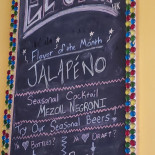 Flavor of the Month
JALAPEÑO
Seasonal Cocktail
MEZCAL NEGRONI
Try Our Seasonal Beers
BOTTLES!
DRAFT!